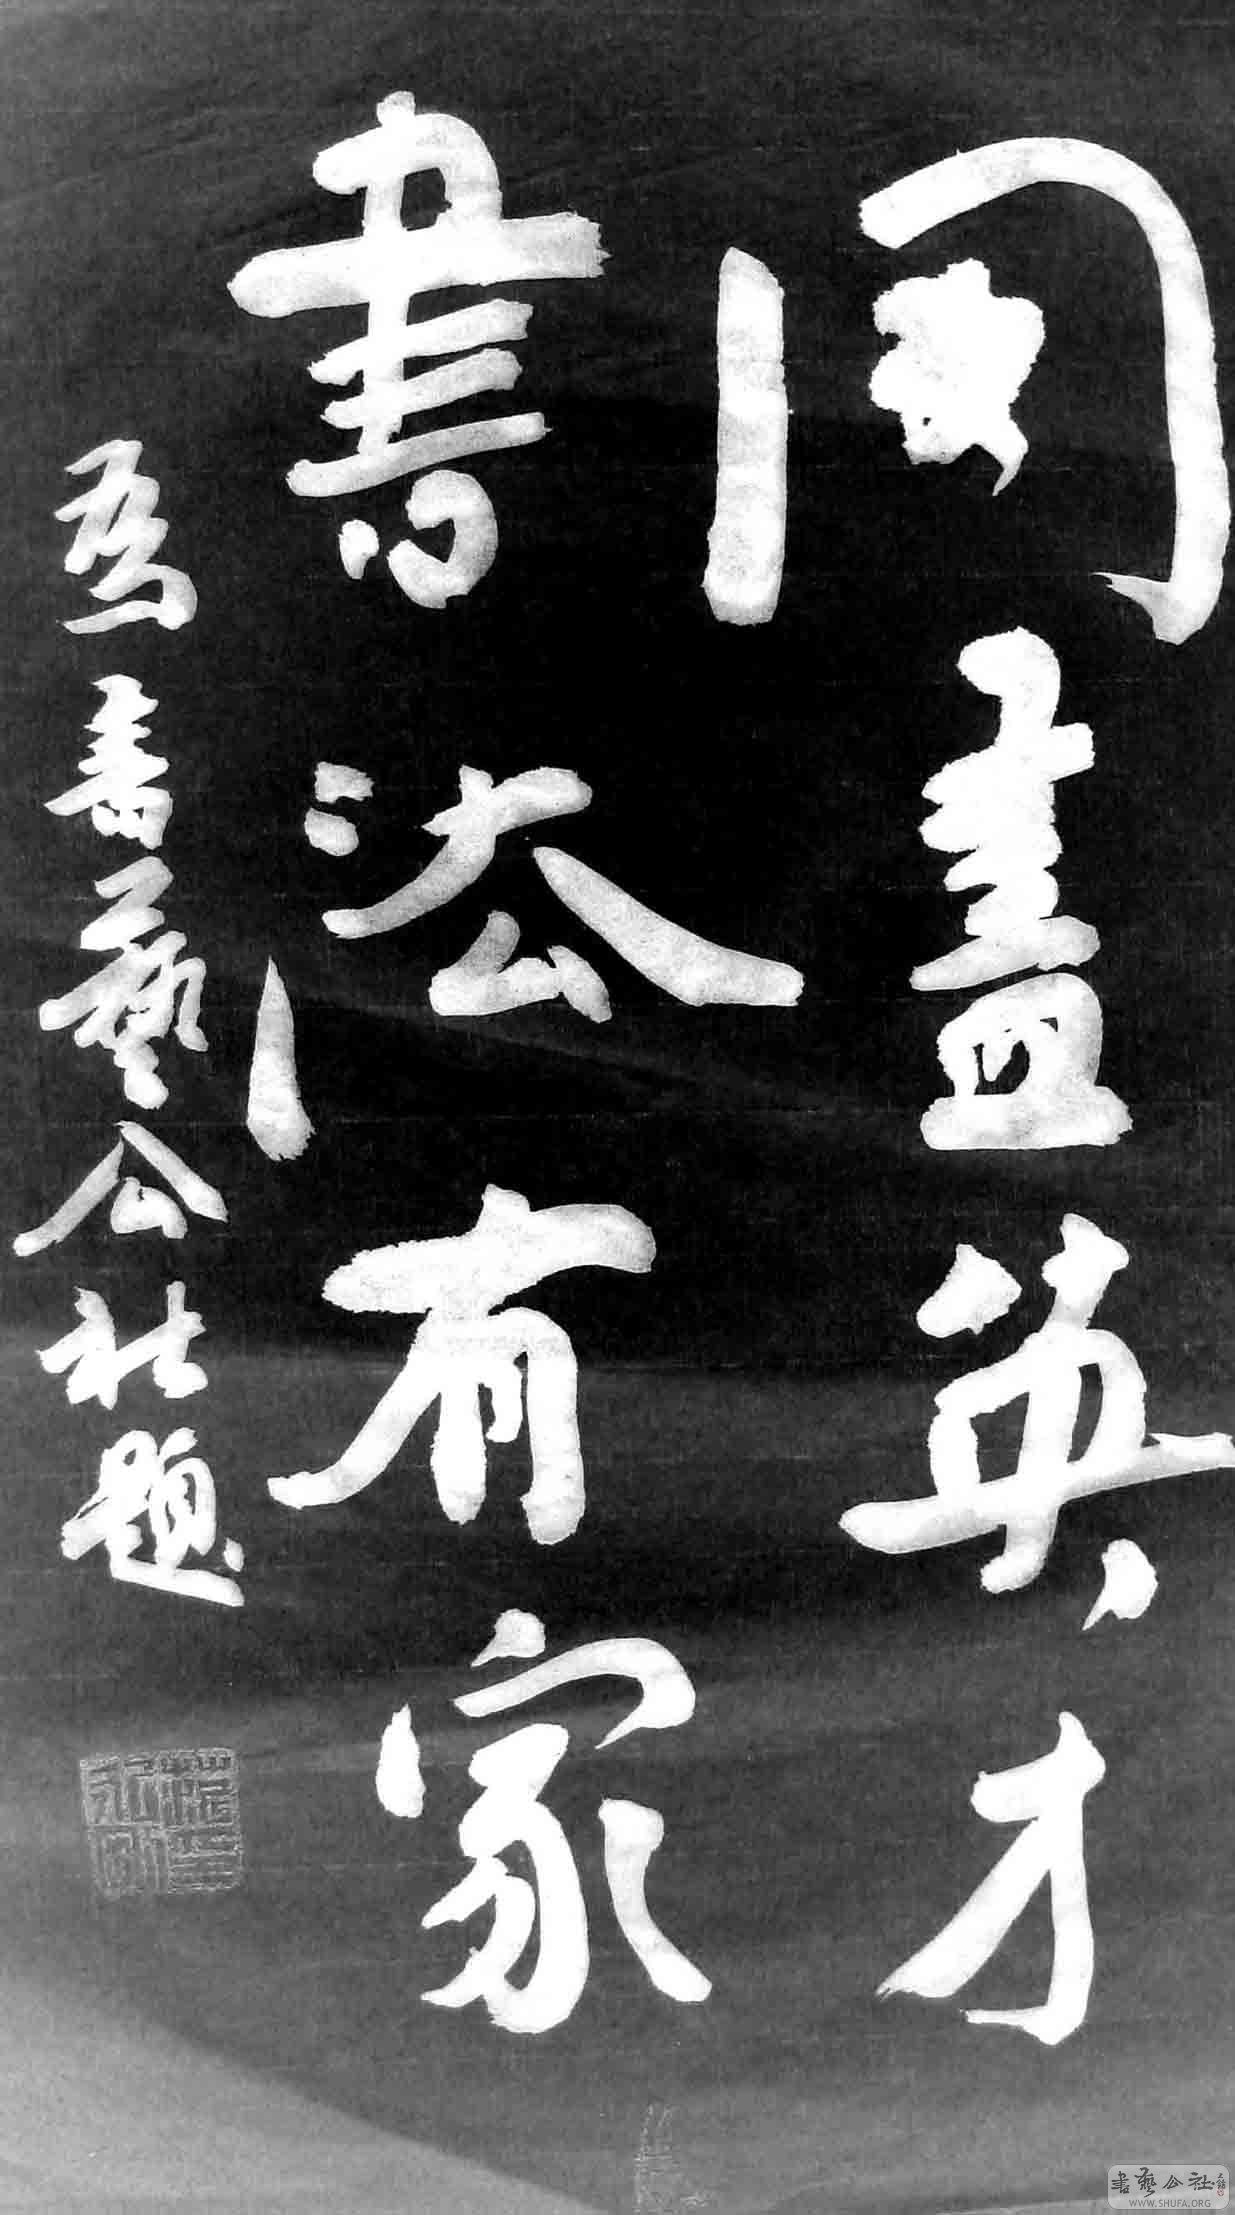 网盡英才
書法有家
為書藝公社題
書藝公社
WWW.SHUFA.ORG